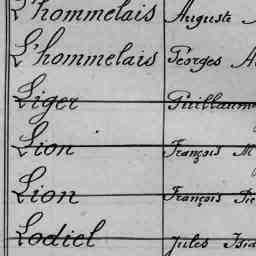 L'hommelais Auguste
L'hommelais Georges
Liger Guillaume
Lion François M
Lion François Pie
Lodiel Jules Isid